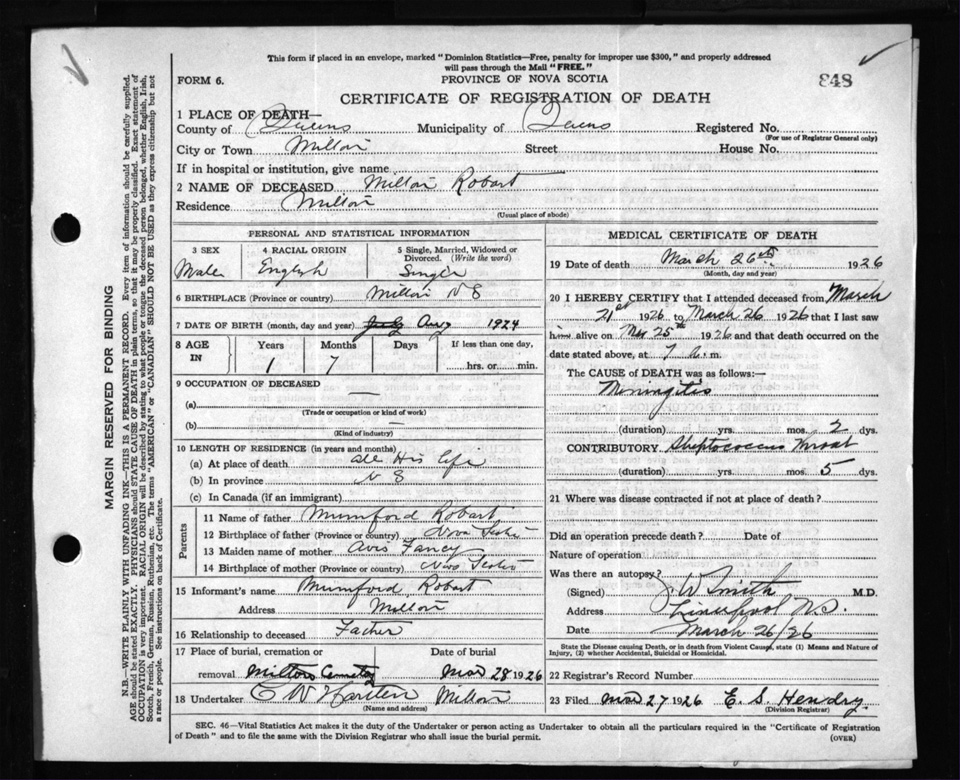 This form if placed in an envelope, marked "Dominion Statistics—Free, penalty for improper use $300," and properly addressed
will pass through the Mail "FREE."
FORM 6.
PROVINCE OF NOVA SCOTIA
848
CERTIFICATE OF REGISTRATION OF DEATH
1 PLACE OF DEATH—
County of Queens Municipality of Queens Registered No.
(For use of Registrar General only)
City or Town Milton Street House No.
If in hospital or institution, give name
2 NAME OF DECEASED Milton Robart
Residence Milton
(Usual place of abode)
PERSONAL AND STATISTICAL INFORMATION
3 SEX 4 RACIAL ORIGIN 5 Single, Married, Widowed or
Divorced. (Write the word)
Male English Single
6 BIRTHPLACE (Province or country) Milton N S
7 DATE OF BIRTH (month, day and year) Aug 1924
8 AGE IN Years Months Days If less than one day,
1 7 hrs. or min.
9 OCCUPATION OF DECEASED
(a) —
(Trade or occupation or kind of work)
(b) —
(Kind of industry)
10 LENGTH OF RESIDENCE (in years and months)
(a) At place of death All His life
(b) In province N S
(c) In Canada (if an immigrant)
Parents
11 Name of father Mumford Robart
12 Birthplace of father (Province or country) Nova Scotia
13 Maiden name of mother Avis Fancy
14 Birthplace of mother (Province or country) Nova Scotia
15 Informant's name Mumford Robart
Address Milton
16 Relationship to deceased Father
17 Place of burial, cremation or Date of burial
removal Milton Cemetery Mar 28 1926
18 Undertaker Milton
(Name and address)
MEDICAL CERTIFICATE OF DEATH
19 Date of death March 26th 1926
(Month, day and year)
20 I HEREBY CERTIFY that I attended deceased from March
21st 1926 to March 26 1926 that I last saw
him alive on Mar 25th 1926 and that death occurred on the
date stated above, at 7 m.
The CAUSE of DEATH was as follows:—
Meningitis
(duration) yrs. mos. 2 dys.
CONTRIBUTORY Streptococcus Throat
(duration) yrs. mos. 5 dys.
21 Where was disease contracted if not at place of death?
Did an operation precede death? Date of
Nature of operation
Was there an autopsy?
(Signed) J W Smith M.D.
Address Liverpool N.S.
Date March 26/26
State the Disease causing Death, or in death from Violent Causes, state (1) Means and Nature of
Injury, (2) whether Accidental, Suicidal or Homicidal.
22 Registrar's Record Number
23 Filed Mar 27 1926 E. S. Hendry
(Division Registrar)
SEC. 46—Vital Statistics Act makes it the duty of the Undertaker or person acting as Undertaker to obtain all the particulars required in the "Certificate of Registration
of Death" and to file the same with the Division Registrar who shall issue the burial permit.
(OVER)
MARGIN RESERVED FOR BINDING
N.B.—WRITE PLAINLY WITH UNFADING INK—THIS IS A PERMANENT RECORD. Every item of information should be carefully supplied.
AGE should be stated EXACTLY. PHYSICIANS should STATE CAUSE OF DEATH in plain terms, so that it may be properly classified. Exact statement of
OCCUPATION is very important. RACIAL ORIGIN will be described by stating to what people or race the deceased person belonged, whether English, Irish,
Scotch, French, German, Russian, Ruthenian, etc. The terms "AMERICAN" or "CANADIAN" SHOULD NOT BE USED as they express citizenship but not
a race or people. See instructions on back of Certificate.